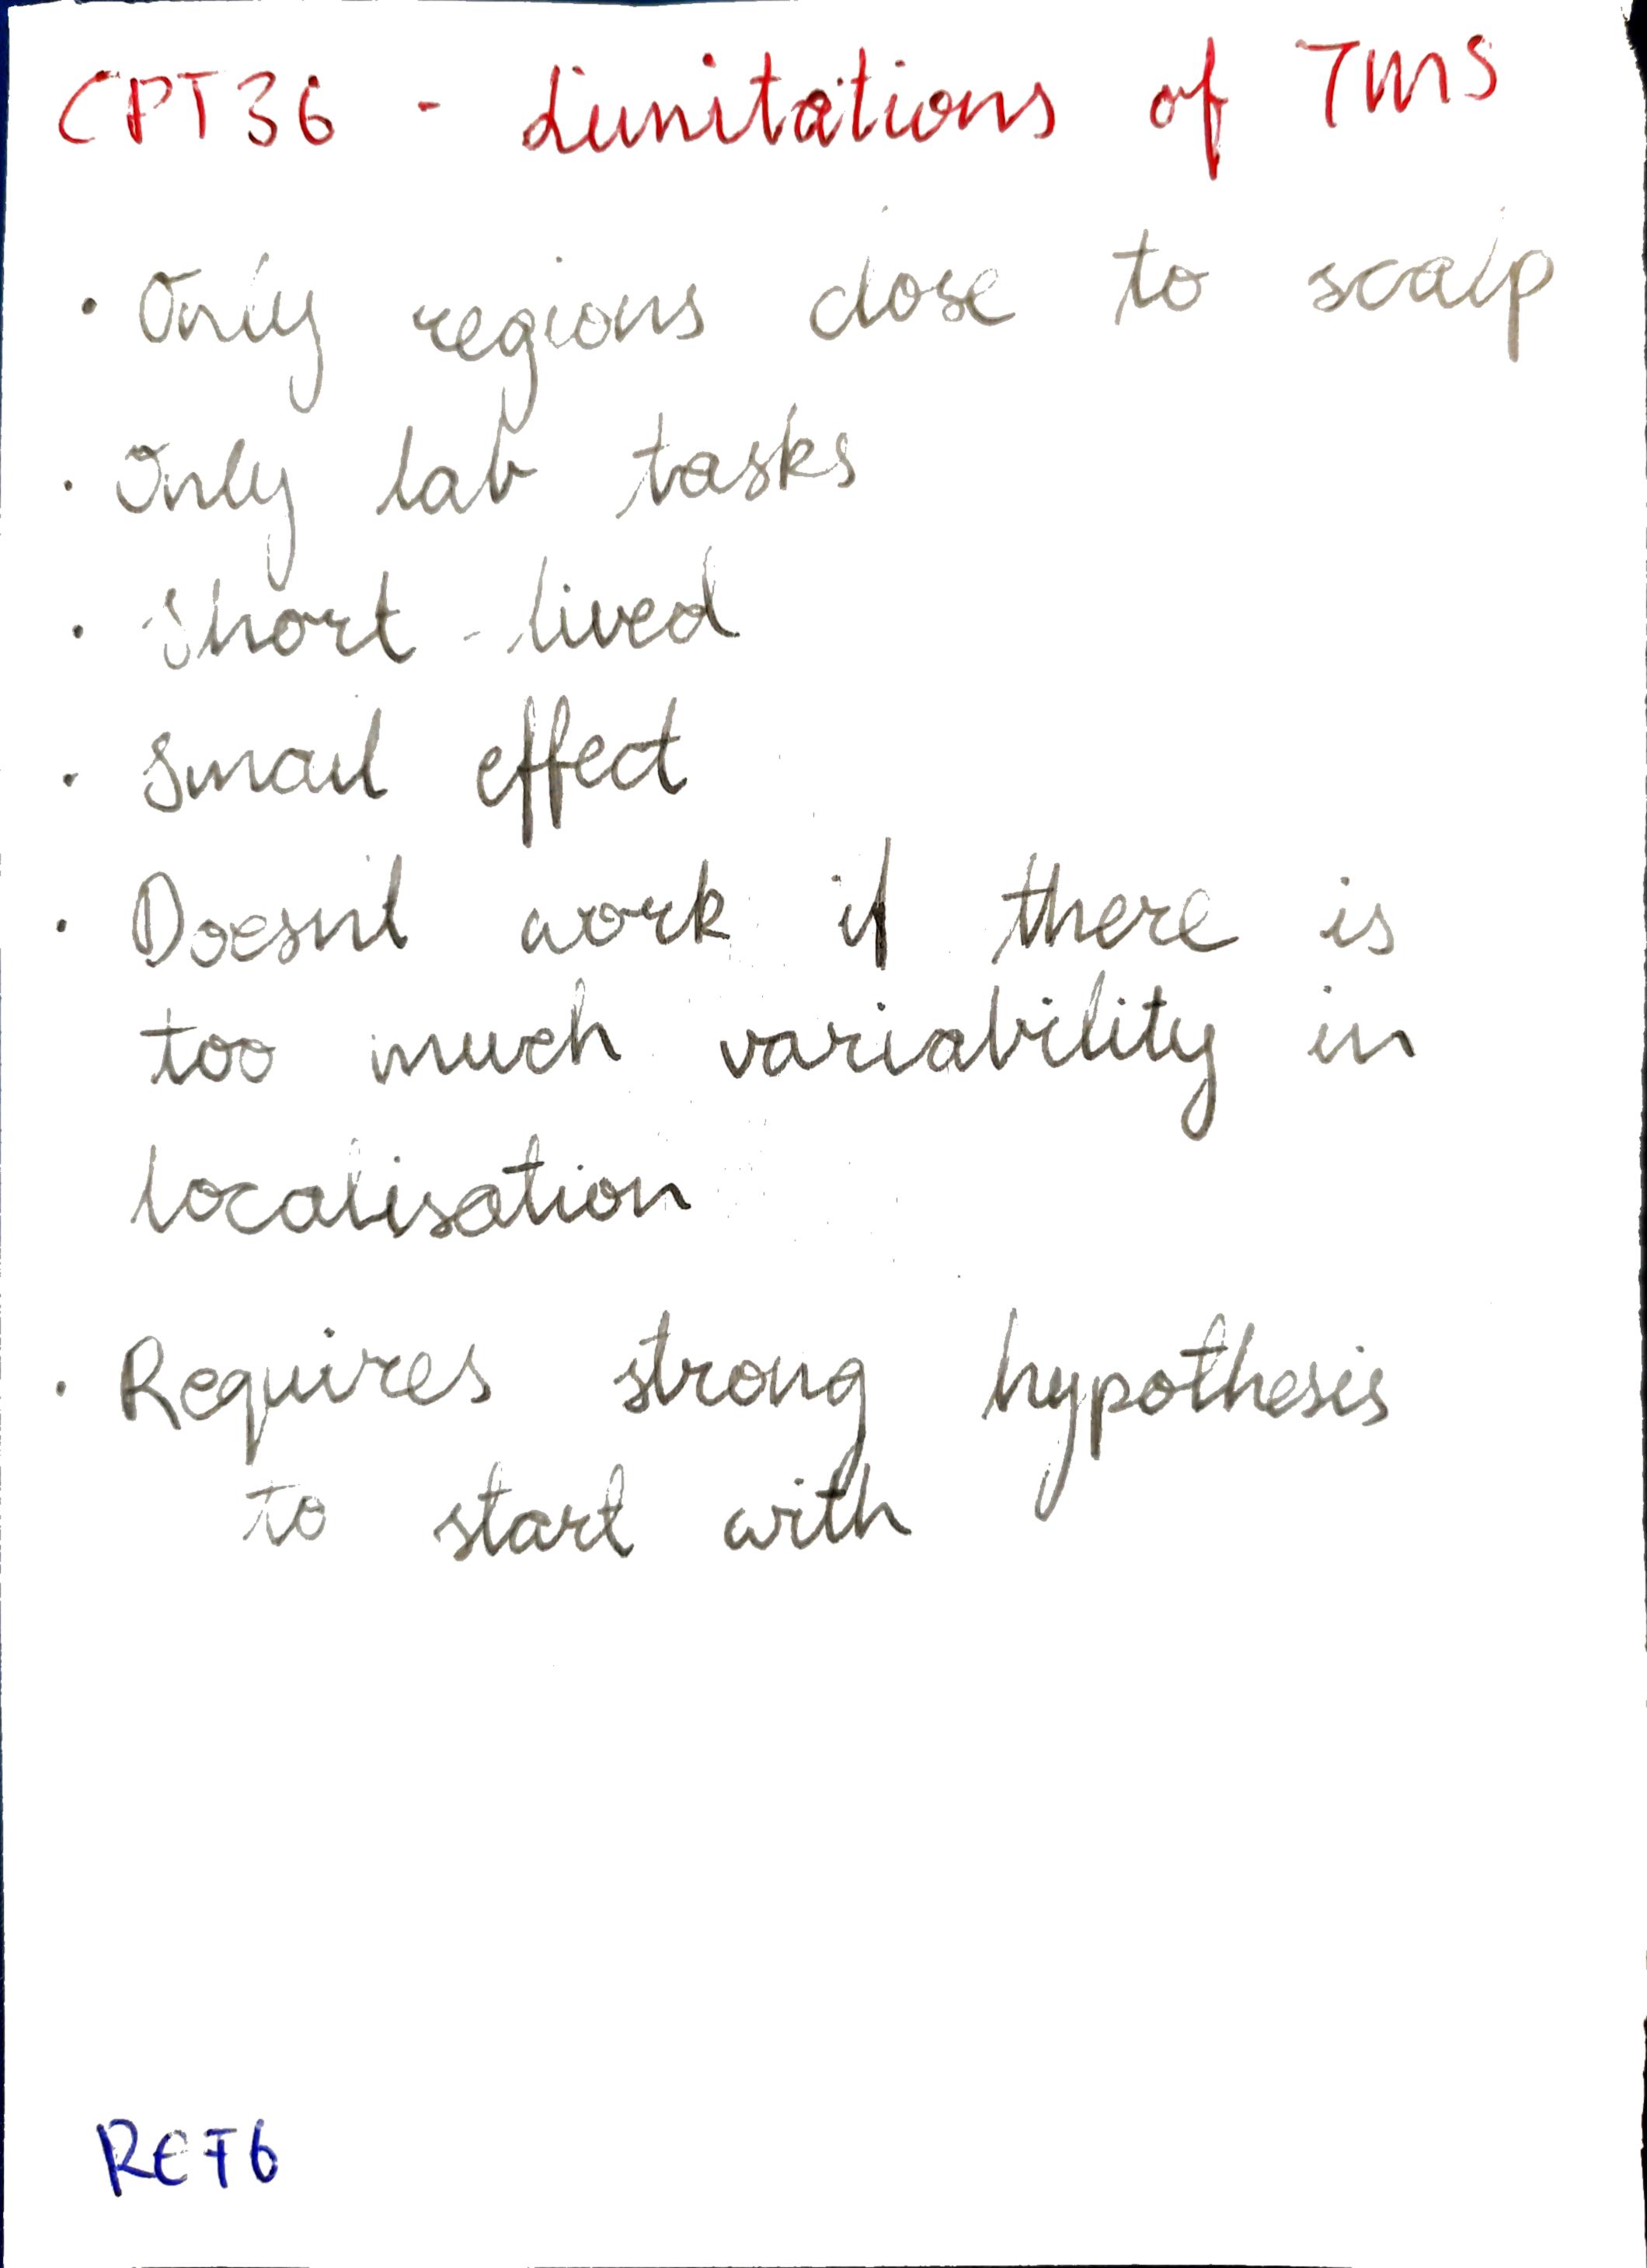 CPT36 - Limitations of TMS
• Only regions close to scalp
• Only lab tasks
• Short-lived
• Small effect
• Doesn't work if there is
too much variability in
localisation
• Requires strong hypothesis
to start with
REF6